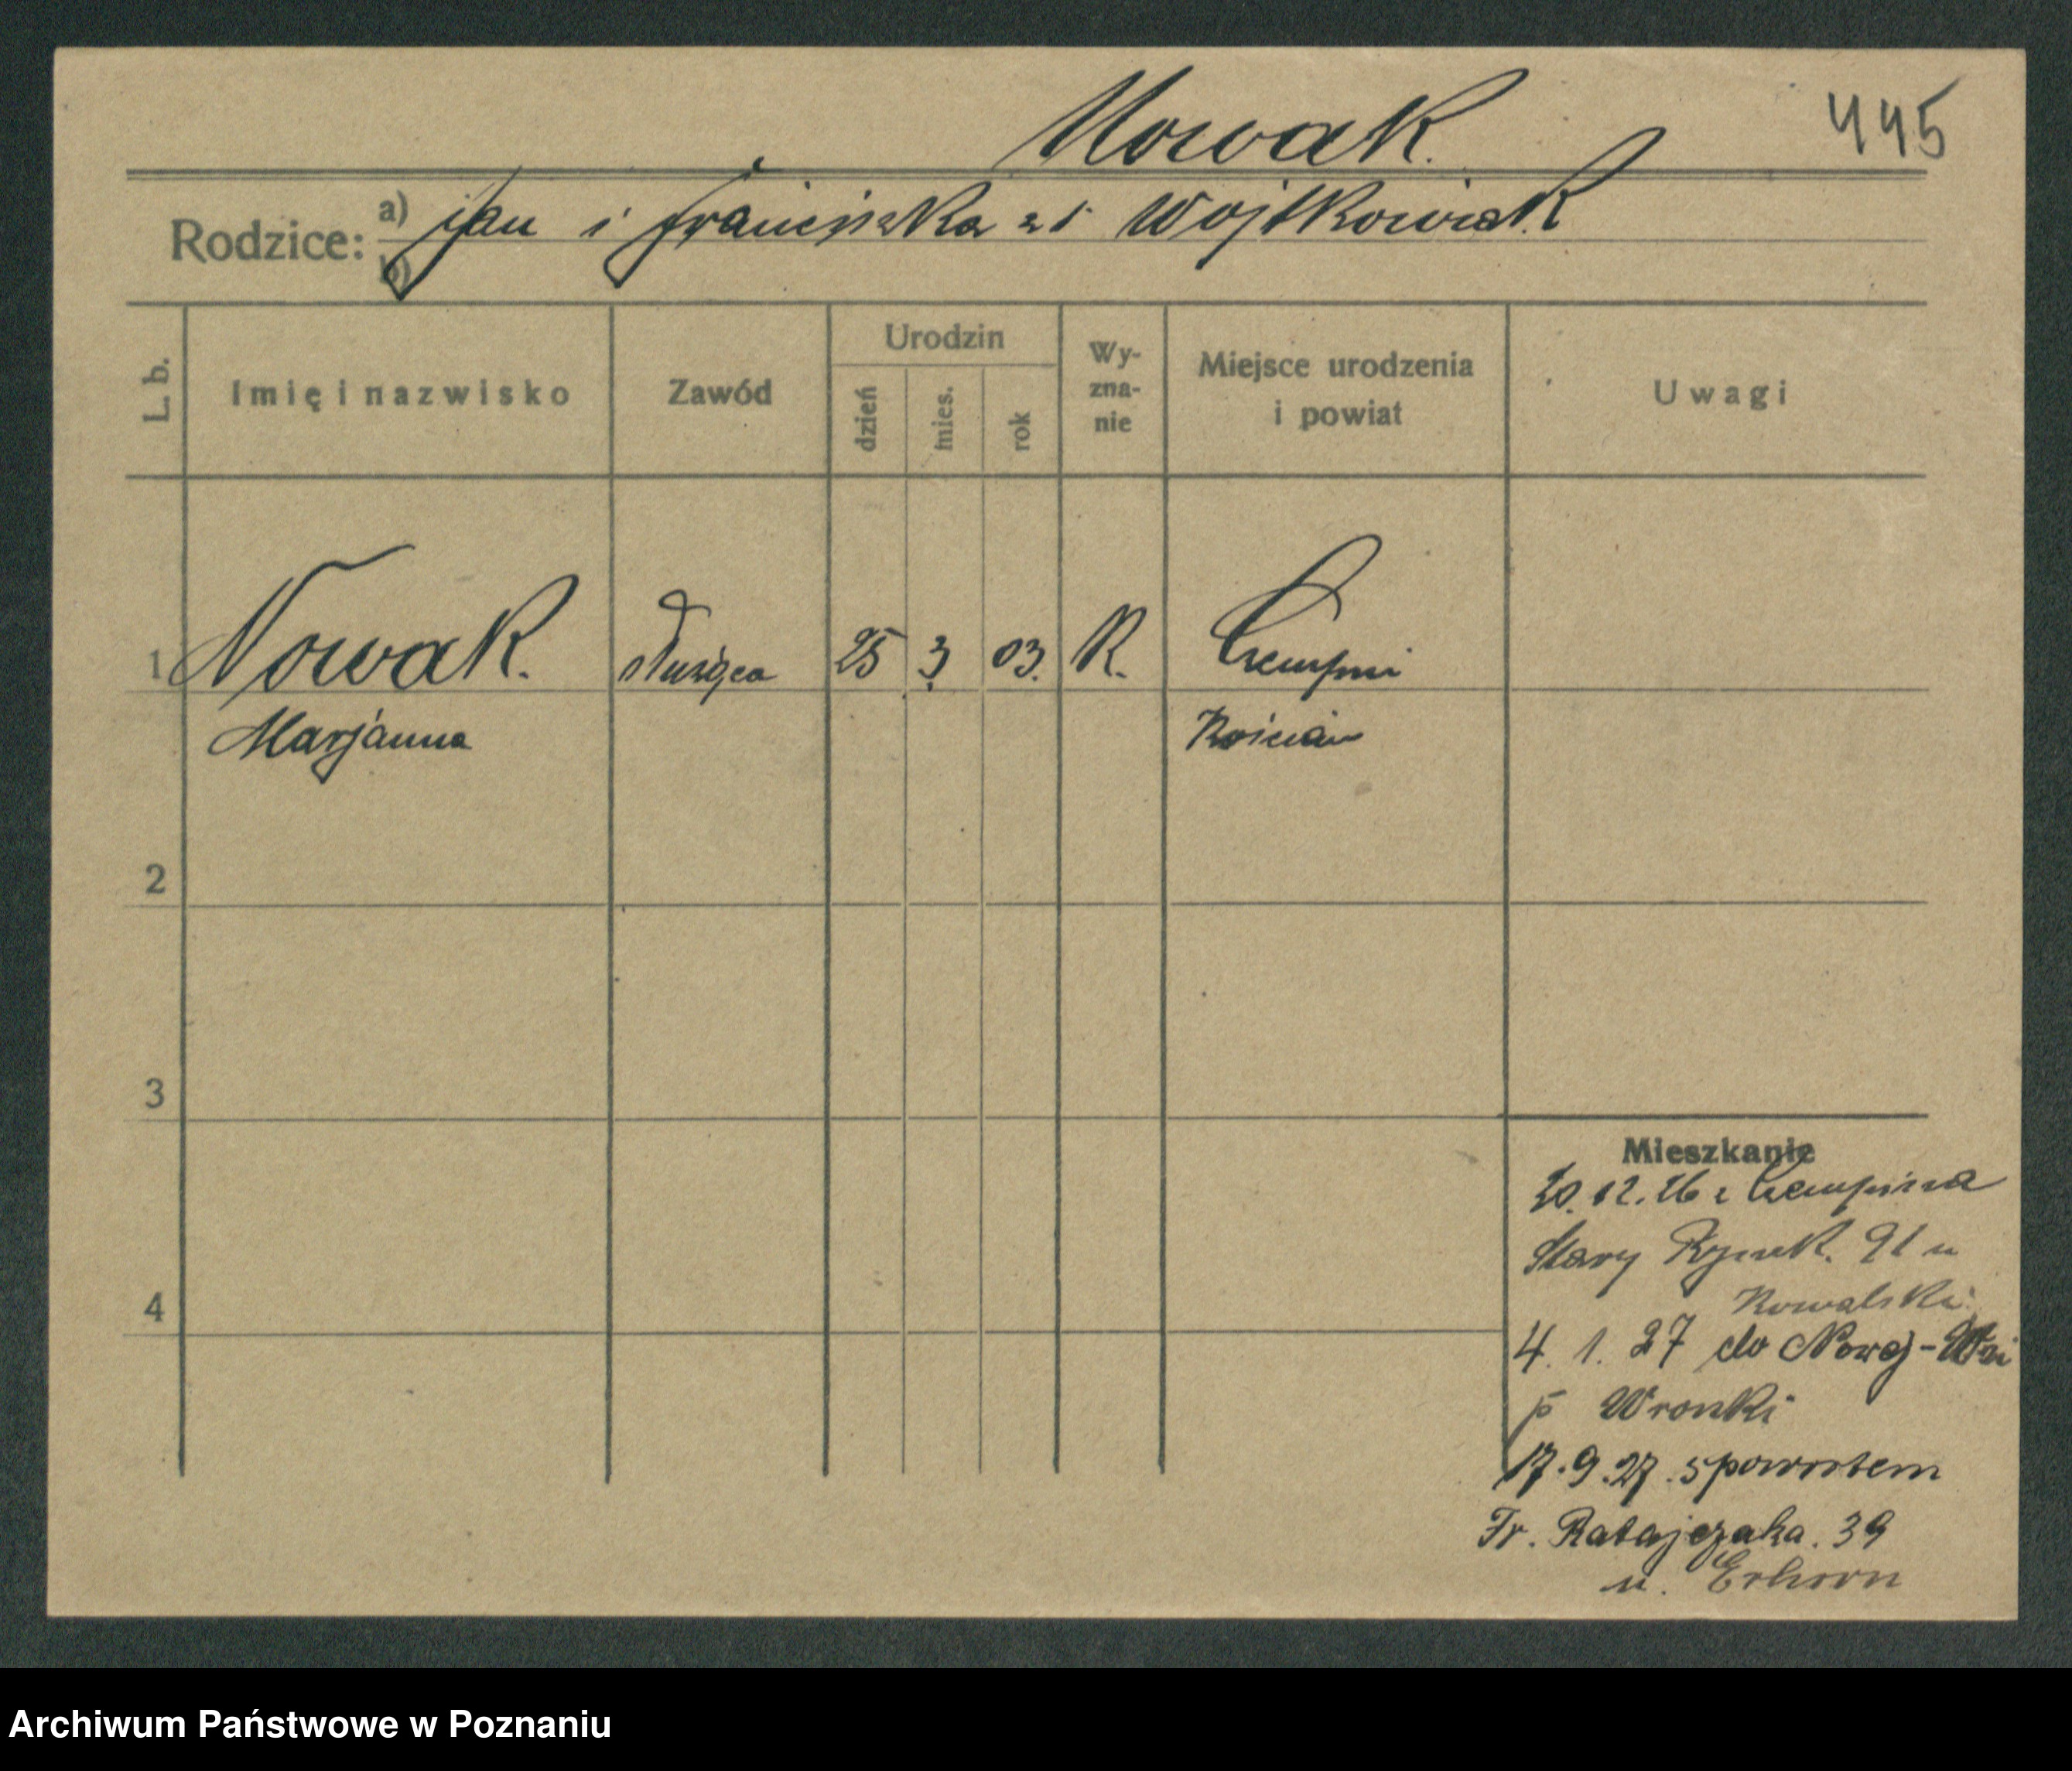 Nowak.
445
Rodzice: a) Jan i Franciszka z d. Wojtkowiak
b)
L. b.
Imię i nazwisko
Zawód
Urodzin
dzień
mies.
rok
Wy-
zna-
nie
Miejsce urodzenia
i powiat
Uwagi
1 Nowak. służąca 25 3. 03. R. Czempiń
Marjanna Kościan
2
3
4
Mieszkanie
20. 12. 26 z Czempinia
Stary Rynek. 91 u
Kowalski.
4. 1. 27 do Nowej-Wsi
p Wronki
17.9.27. spowrotem
Fr. Ratajczaka. 39
u.
Archiwum Państwowe w Poznaniu